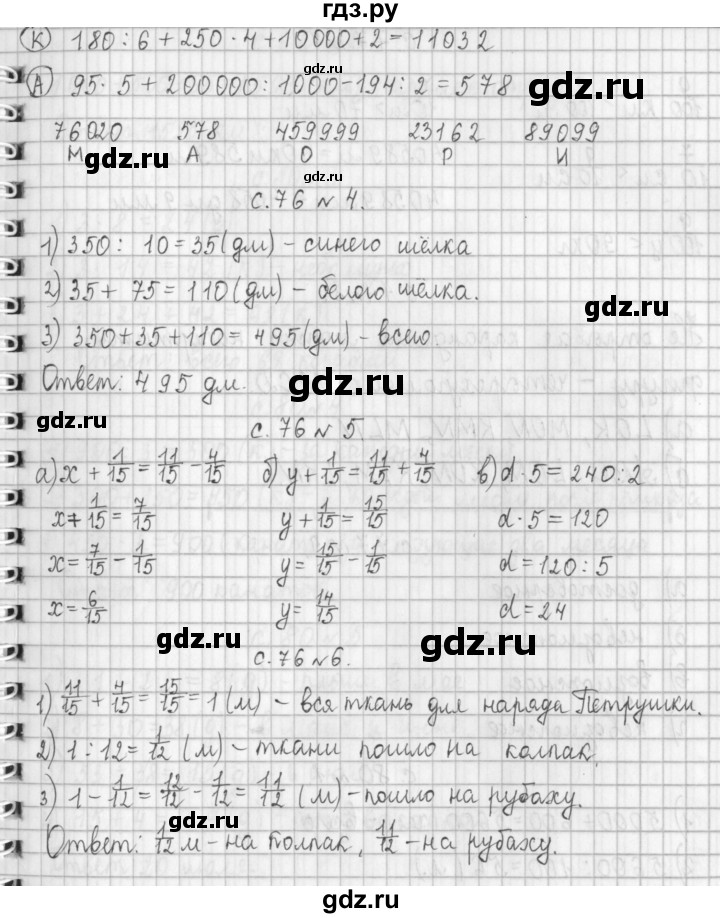 гдз.ру
К) 180 : 6 + 250 · 4 + 10000 + 2 = 11032
gdz.ru
А) 95 · 5 + 200000 : 1000 - 194 : 2 = 578 gdz.ru
76020 578 459999 23162 89099
М А О Р И
gdz.ru gdz.ru
с. 76 № 4.
1) 350 : 10 = 35 (дм) - синего шёлка
gdz.ru
2) 35 + 75 = 110 (дм) - белого шёлка.
gdz.ru
3) 350 + 35 + 110 = 495 (дм) - всего
Ответ: 495 дм. gdz.ru
с. 76 № 5
gdz.ru
а) x + 1/15 = 11/15 - 4/15 б) y + 1/15 = 11/15 + 4/15 в) d · 5 = 240 : 2
x + 1/15 = 7/15 y + 1/15 = 15/15 d · 5 = 120
x = 7/15 - 1/15 y = 15/15 - 1/15 d = 120 : 5
x = 6/15 y = 14/15 d = 24
gdz.ru gdz.ru
с. 76 № 6.
1) 11/15 + 4/15 = 15/15 = 1 (м) - вся ткань для наряда Петрушки.
2) 1 : 12 = 1/12 (м) - ткани пошло на колпак.
gdz.ru
3) 1 - 1/12 = 12/12 - 1/12 = 11/12 (м) - пошло на рубаху.
gdz.ru
Ответ: 1/12 м - на полпак, 11/12 - на рубаху.
gdz.ru
gdz.ru